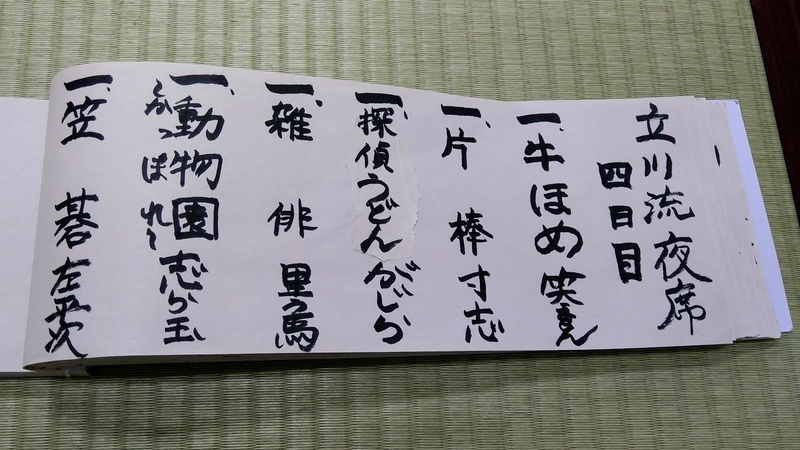 立川流夜席
四日目
一、牛ほめ 笑えもん
一、片棒 寸志
一、探偵うどん がじら
一、雑俳 里う馬
一、動物園 志ら玉
かっぽれ
一、笠碁 左平次